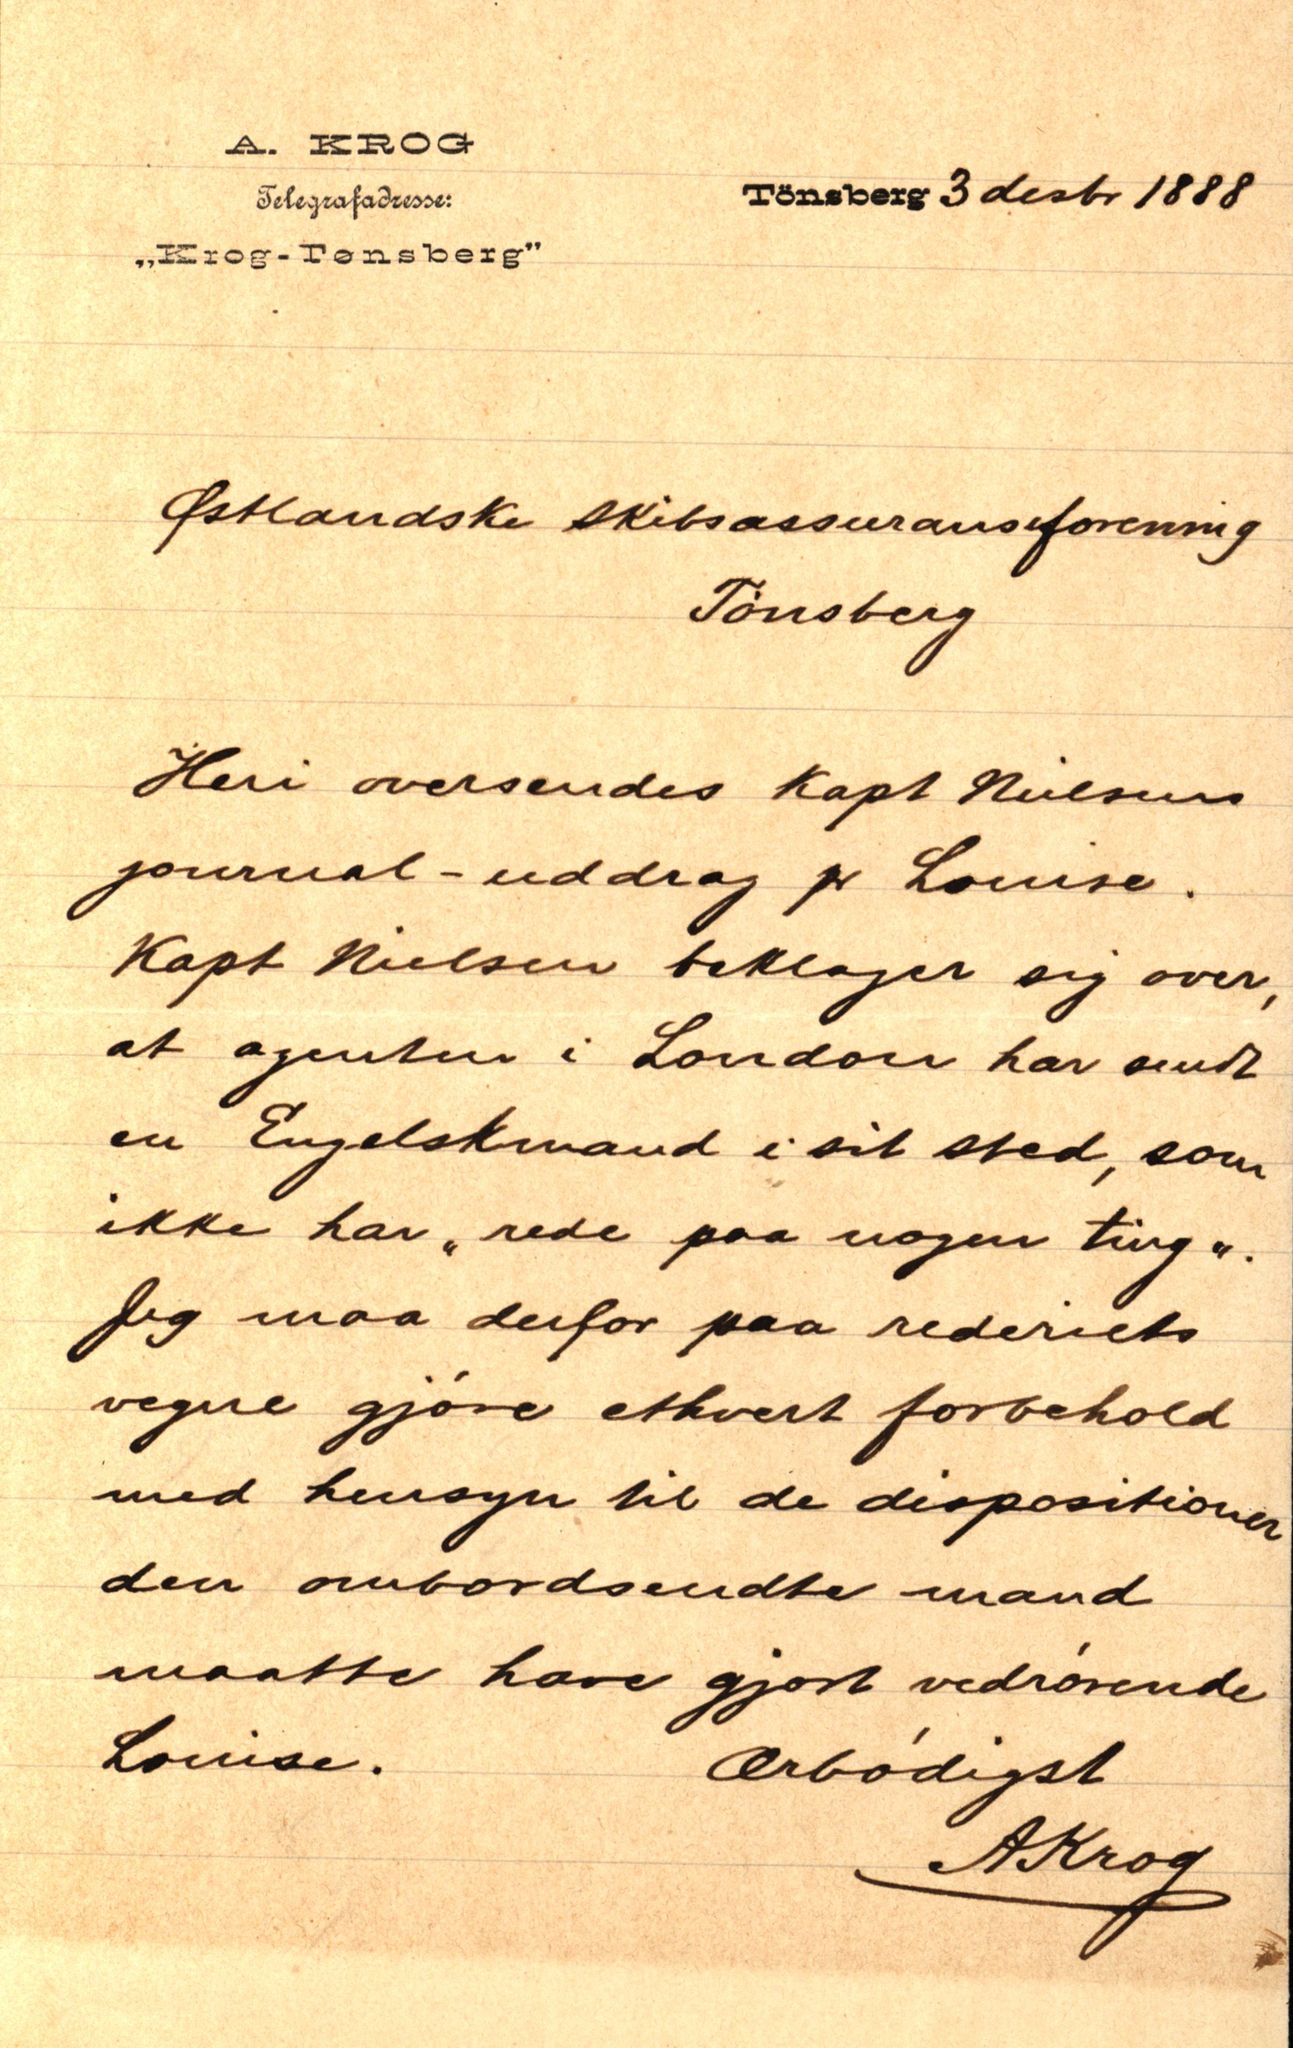 A. KROG
Telegrafadresse:
„Krog-Tønsberg"
Tönsberg 3 desbr 1888
Østlandske skibsassuranseforening
Tönsberg
Heri oversendes Kapt Nielsens
journal-uddrag pr Louise.
Kapt Nielsen beklager sig over,
at agenten i London har sendt
en Engelskmand i sit sted, som
ikke har „rede paa nogen ting".
Jeg maa derfor paa rederiets
vegne gjóre ethvert forbehold
med hensyn til de dispositioner
den ombordsendte mand
maatte have gjort vedrórende
Louise. Ærbódigst
AKrog